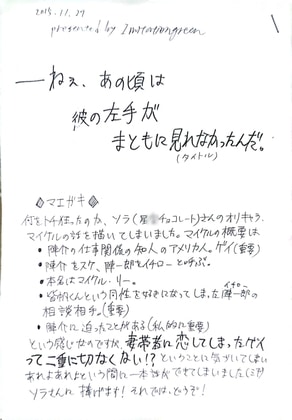 2015.11.29
presented by Imitationgreen
―ねぇ、あの頃は
彼の左手が
まともに見れなかったんだ。
(タイトル)
◇マエガキ◇
何をトチ狂ったのか、ソラ(星 チョコレート)さんのオリキャラ、
マイケルの話を描いてしまいました。マイケルの概要は
・陣介の仕事関係の知人のアメリカ人。ゲイ(重要)
・陣介をスケ、陣一郎をイチローと呼ぶ。
・本名はマイケル・リー。
・皆胡くんという同性を好きになってしまった陣一郎の
イチロー
相談相手。(重要)
・陣介に迫ったことがある(私的に重要)
という感じなのですが、妻帯者に恋してしまったゲイ
って二重に切なくない!?ということに気づいてしまい
あれよあれよという間に一本話ができてしまいました(ミ)
ソラさんに捧げます!それでは、どうぞ!